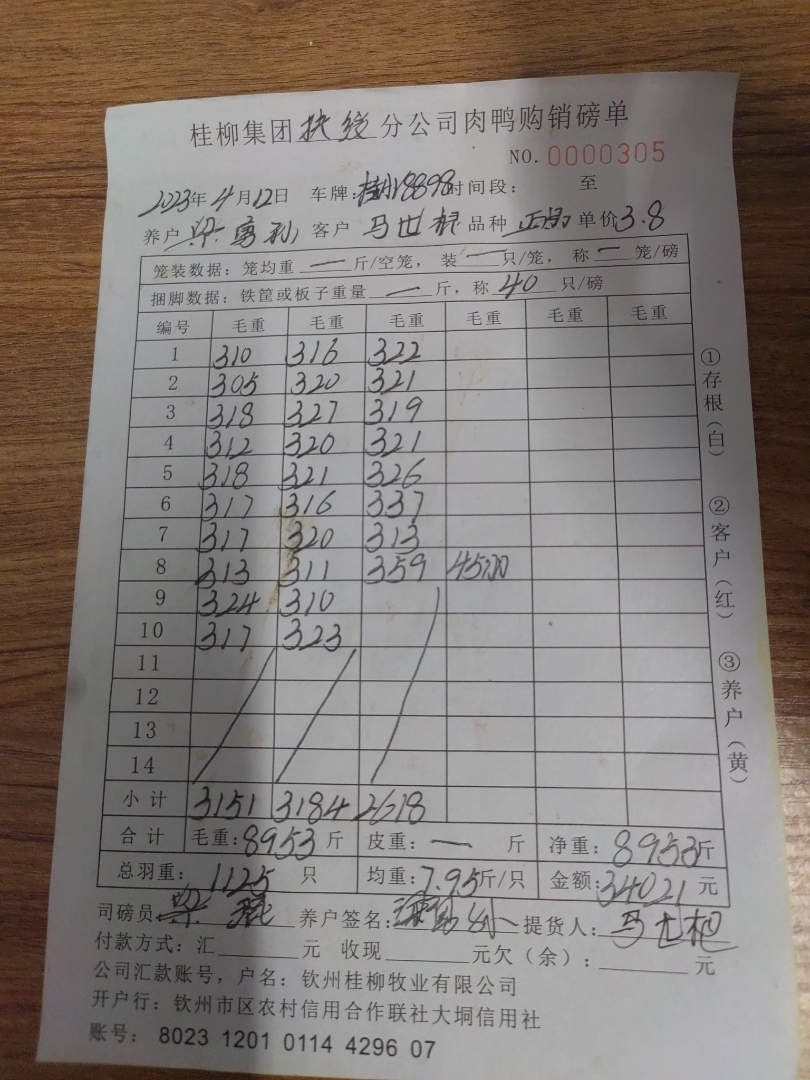 桂柳集团扶绥分公司肉鸭购销磅单
NO. 0000305
2023年4月12日 车牌:桂 18898 时间段: 至
养户 梁 客户 马世 品种 单价3.8
笼装数据: 笼均重 一 斤/空笼, 装 一 只/笼, 称 一 笼/磅
捆脚数据: 铁筐或板子重量 一 斤, 称 40 只/磅
编号 毛重 毛重 毛重 毛重 毛重 毛重
1 310 316 322
2 305 320 321
3 318 327 319
4 312 320 321
5 318 321 326
6 317 316 337
7 317 320 313
8 313 311 359 45羽
9 324 310
10 317 323
11
12
13
14
小计 3151 3184 2618
合计 毛重:8953斤 皮重: 一 斤 净重:8953斤
总羽重: 1125 只 均重:7.95斤/只 金额:34021元
司磅员 梁 养户签名: 提货人: 马世
付款方式: 汇 元 收现 元欠(余): 元
公司汇款账号, 户名: 钦州桂柳牧业有限公司
开户行: 钦州市区农村信用合作联社大垌信用社
账号: 8023 1201 0114 4296 07
①存根(白)
②客户(红)
③养户(黄)